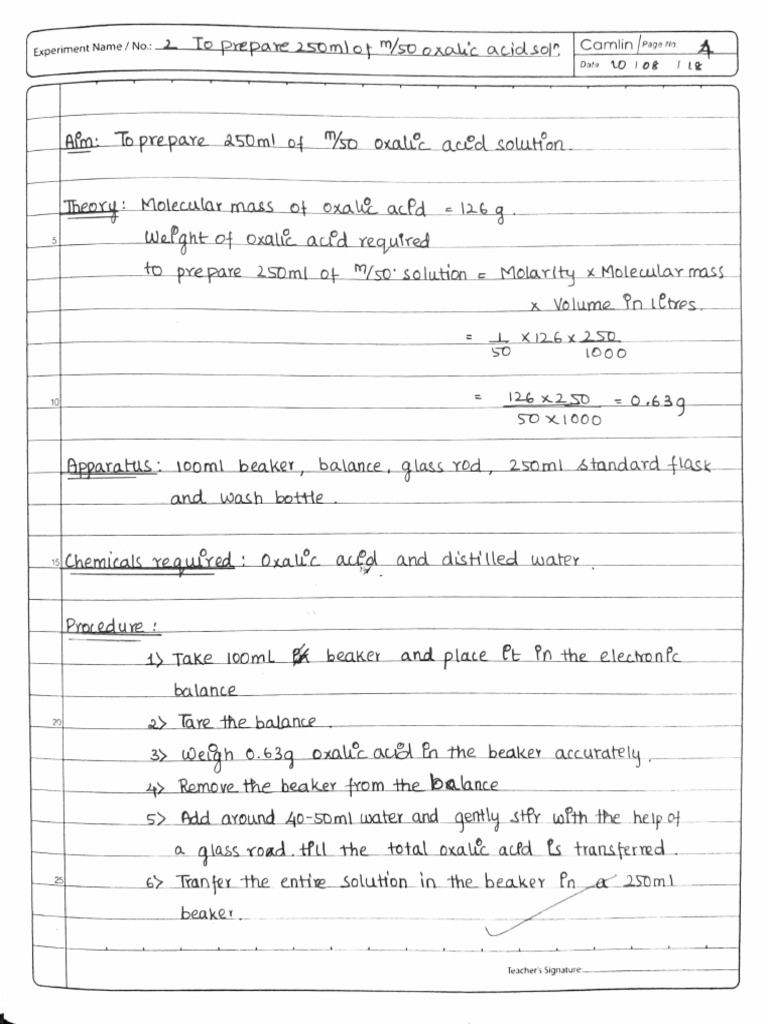 Experiment Name / No.: 2 To prepare 250ml of m/50 oxalic acid soln.
Camlin Page No. 4
Date 20 / 08 / 18
Aim: To prepare 250ml of m/50 oxalic acid solution.
Theory: Molecular mass of oxalic acid = 126 g.
5 Weight of oxalic acid required
to prepare 250ml of m/50 solution = Molarity x Molecular mass
x Volume in litres.
= 1/50 x 126 x 250/1000
10 = 126 x 250 / 50 x 1000 = 0.63g
Apparatus: 100ml beaker, balance, glass rod, 250ml standard flask
and wash bottle.
15 Chemicals required: Oxalic acid and distilled water.
Procedure:
1> Take 100mL beaker and place it in the electronic
balance
20 2> Tare the balance.
3> Weigh 0.63g oxalic acid in the beaker accurately.
4> Remove the beaker from the balance
5> Add around 40-50ml water and gently stir with the help of
a glass road. till the total oxalic acid is transferred.
25 6> Tranfer the entire solution in the beaker in a 250ml
beaker.
Teacher's Signature